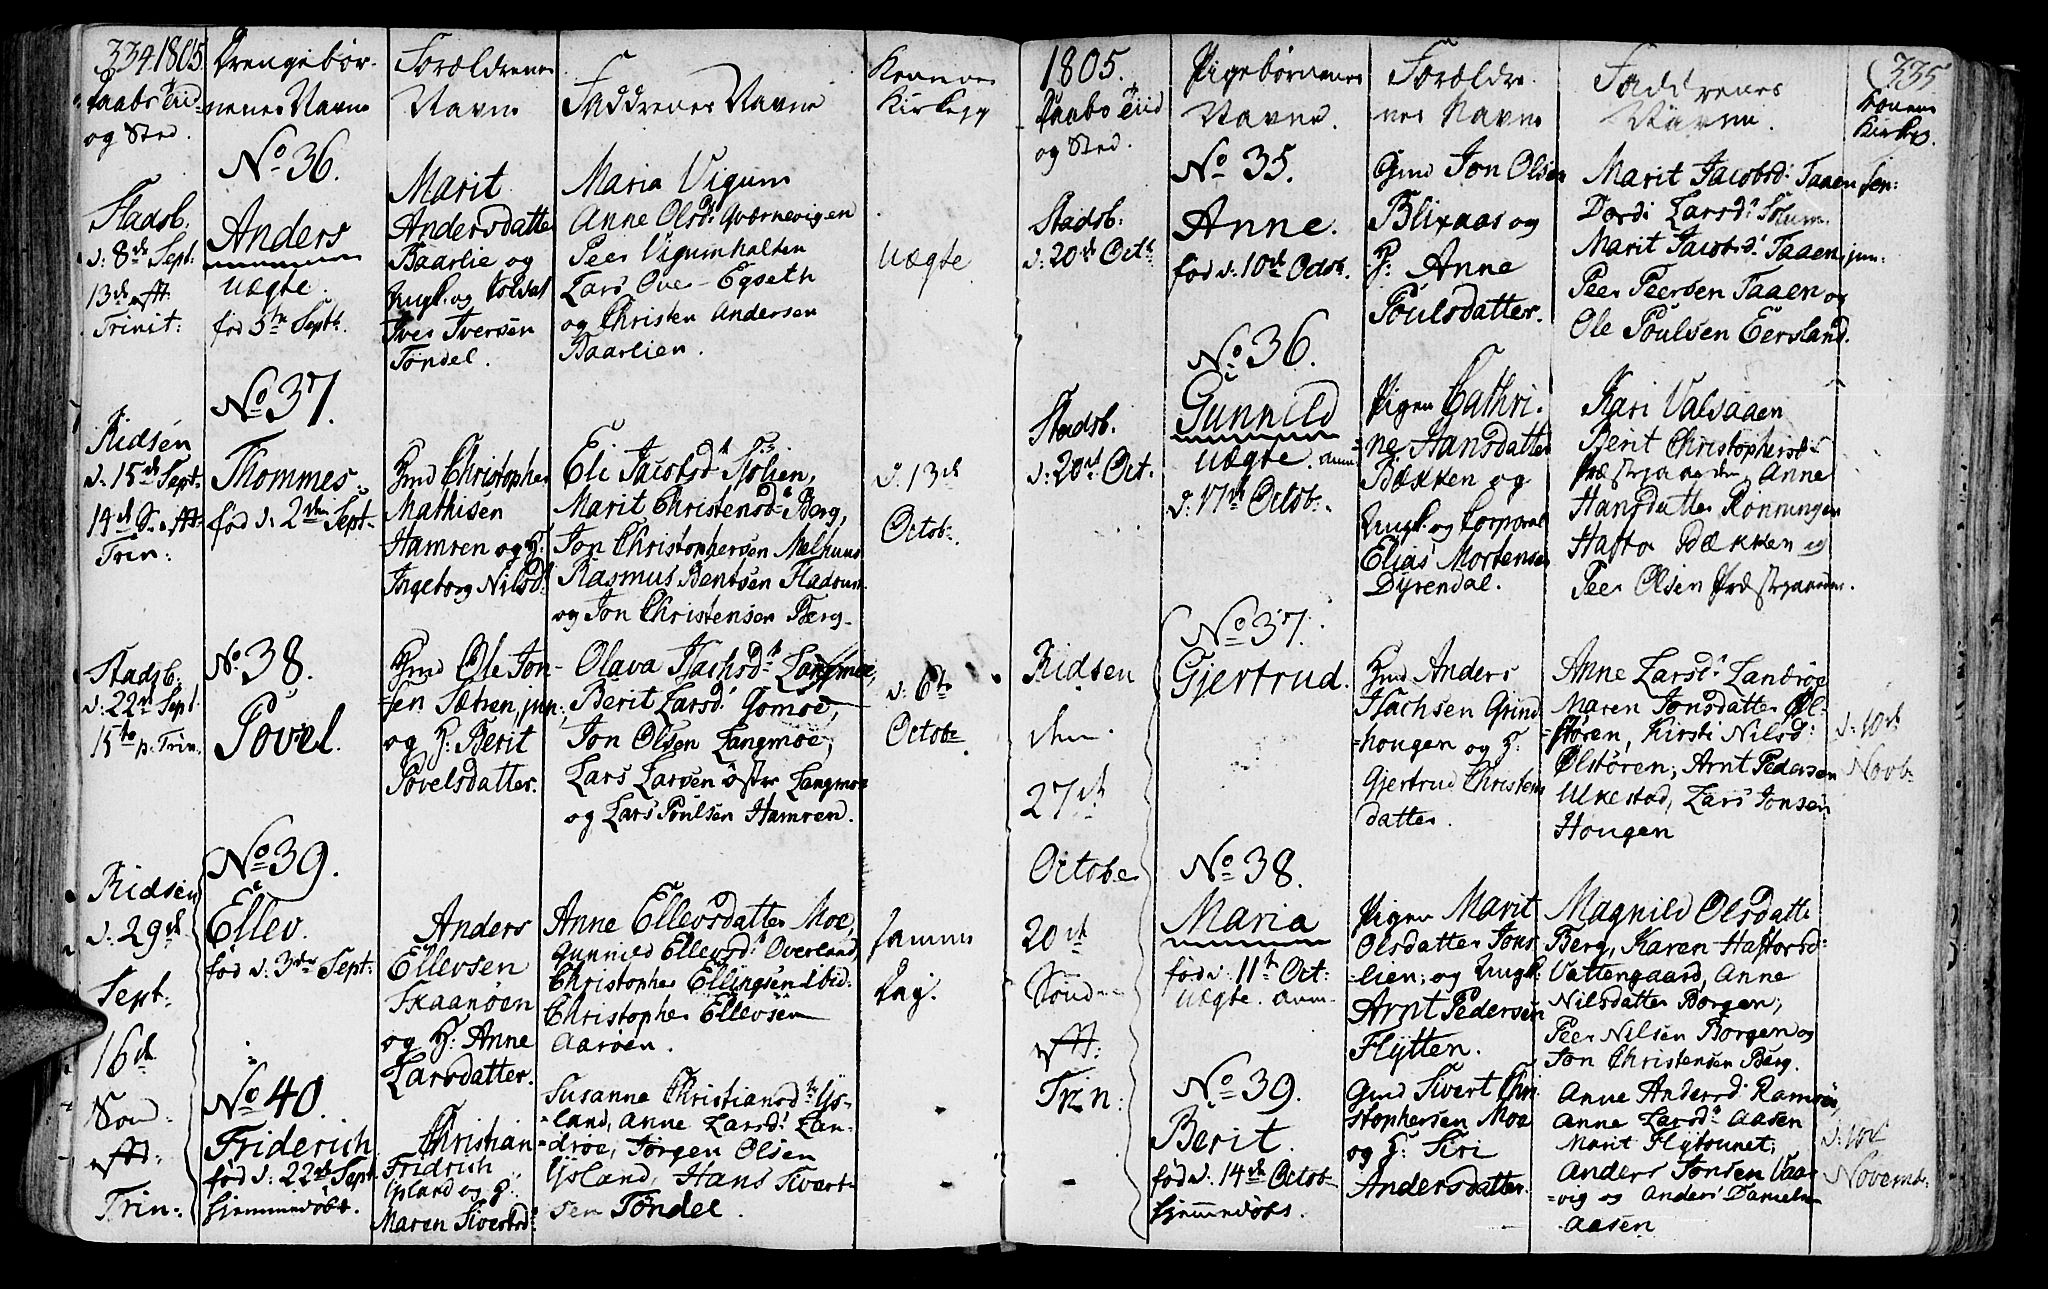 334. 1805.
Daabs Tiid
og Sted.
Drengebør-
nenes Navne
Forældrenes
Navne
Faddrenes Navne
Konenes
Kirkegg
No 36.
Stadsb:
d: 8de Sept:
13de p. Trinit:
Anders
uægte.
fød 5te Septb.
Marit
Andersdatter
Baarlie og
Ungk. og Soldat
Iver Iversen
Töndel.
Maria Vigum
Anne Olsdr Qværnevigen
Peer Vigumhalten
Lars Over-Egseth
og Christen Andersen
Baarlien.
uægte
No 37.
Ridsen
d: 15de Sept:
14de S. p.
Trin:
Thommes
fød d: 2den Sept-
Gmd Christopher
Mathisen
Hamren og H:
Ingeborg Nilsdr
Eli Jacobsdr Sjölien,
Marit Christensdr Berg,
Jon Christophersen Melhuus
Rasmus Bentsen
og Jon Christensen Berg-
d: 13de
Octob:
No 38.
Stadsb:
d: 22de Sept
15de p. Trin.
Povel.
Gmd Ole Jon-
sen Sætren, jun:
og H: Berit
Povelsdatter.
Olava Isachsdr Langmoe,
Berit Larsdr Gomoe,
Jon Olsen Langmoe,
Lars Larsen öster Langmoe
og Lars Poulsen Hamren.
d: 6te
Octob:
No 39.
Ridsen
d: 29de
Sept:
16de
Sönd:
Trin:
Ellev.
fød d: 3die Sept:
Anders
Ellevsen
Skaanöen
og H: Anne
Larsdatter.
Anne Ellevsdatter Moe,
Gunnild Ellevsdr Overland,
Christopher Ellingsen ibid.
Christopher Ellevsen
Aaröen.
samme
Dag.
No 40.
Friderich
fød d: 22de Sept
hjemmedöbt.
Christian
Fridrich
Ysland og H:
Maren Sivertsdr
Susanna Christiansdr Ys-
=land, Anne Larsdr Lan-
=dröe, Jörgen Olsen
Ysland, Hans Sivert-
sen Töndel.
335
1805.
Daabs Tiid
og Sted.
Pigebørnenes
Navne.
Forældre-
nes Navne
Faddrenes
Navne.
Konens
Kirkeg.
No 35.
Stadsb:
d: 20de Octb
Anne.
fød d: 10de Octb.
Gmd Jon Olsen
Blixaas og
H: Anne
Poulsdatter.
Marit Jacobsdr Taaen, sen:
Dordi Larsdr Solum
Marit Jacobsdr Taaen, jun:
Peer Peersen Taaen og
Ole Poulsen Eersland.
No 36.
Stadsb.
d: 20de Oct.
Gunnild
uægte. anm
d: 17de Octob:
Pigen Cathri-
=ne Hansdatter
Bækken og
Ungk. og Corporal
Elias Mortensen
Dyrendal.
Kari Valsaaen
Berit Christophersdr
Præstgaarden, Anne
Hansdatter Rönningen
Haftor Bækken og
Peer Olsen Præstgaarden.
No 37.
Ridsen
den
27de
Octobe
20de
Sönd-
Trin:
Gjertrud.
Gmd Anders
Isachsen Grind
=hougen og H:
Gjertrud Christens
datter.
Anne Larsdr Landröe
Maren Jonsdatter Öl-
=stören, Kirsti Nilsd:
Ölstören, Arnt Pedersen
Ulkestad, Lars Jonsen
Hougen
d: 10de
Novb:
No 38.
Maria
fød d: 11te Oct:
uægte. anm-
Pigen Marit
Olsdatter Jons
-lien; og Ungk.
Arnt Pedersen
Flytten.
Magnild Olsdatte
Berg, Karen Haftorsd:
Vattengaard, Anne
Nilsdatter Borgen,
Peer Nilsen Borgen og
Jon Christensen Berg.
No 39.
Berit.
fød d: 14de Octob:
hjemmedöbt.
Gmd Sivert Chri
stophersen Moe
og H: Siri
Andersdatter.
Anne Andersd: Ramsöe,
Anne Larsdr Aasen
Marit Flytrunet,
Anders Jonsen Vaa-
=vig og Anders Danielsen
Aasen
d: 10de
Novemb: